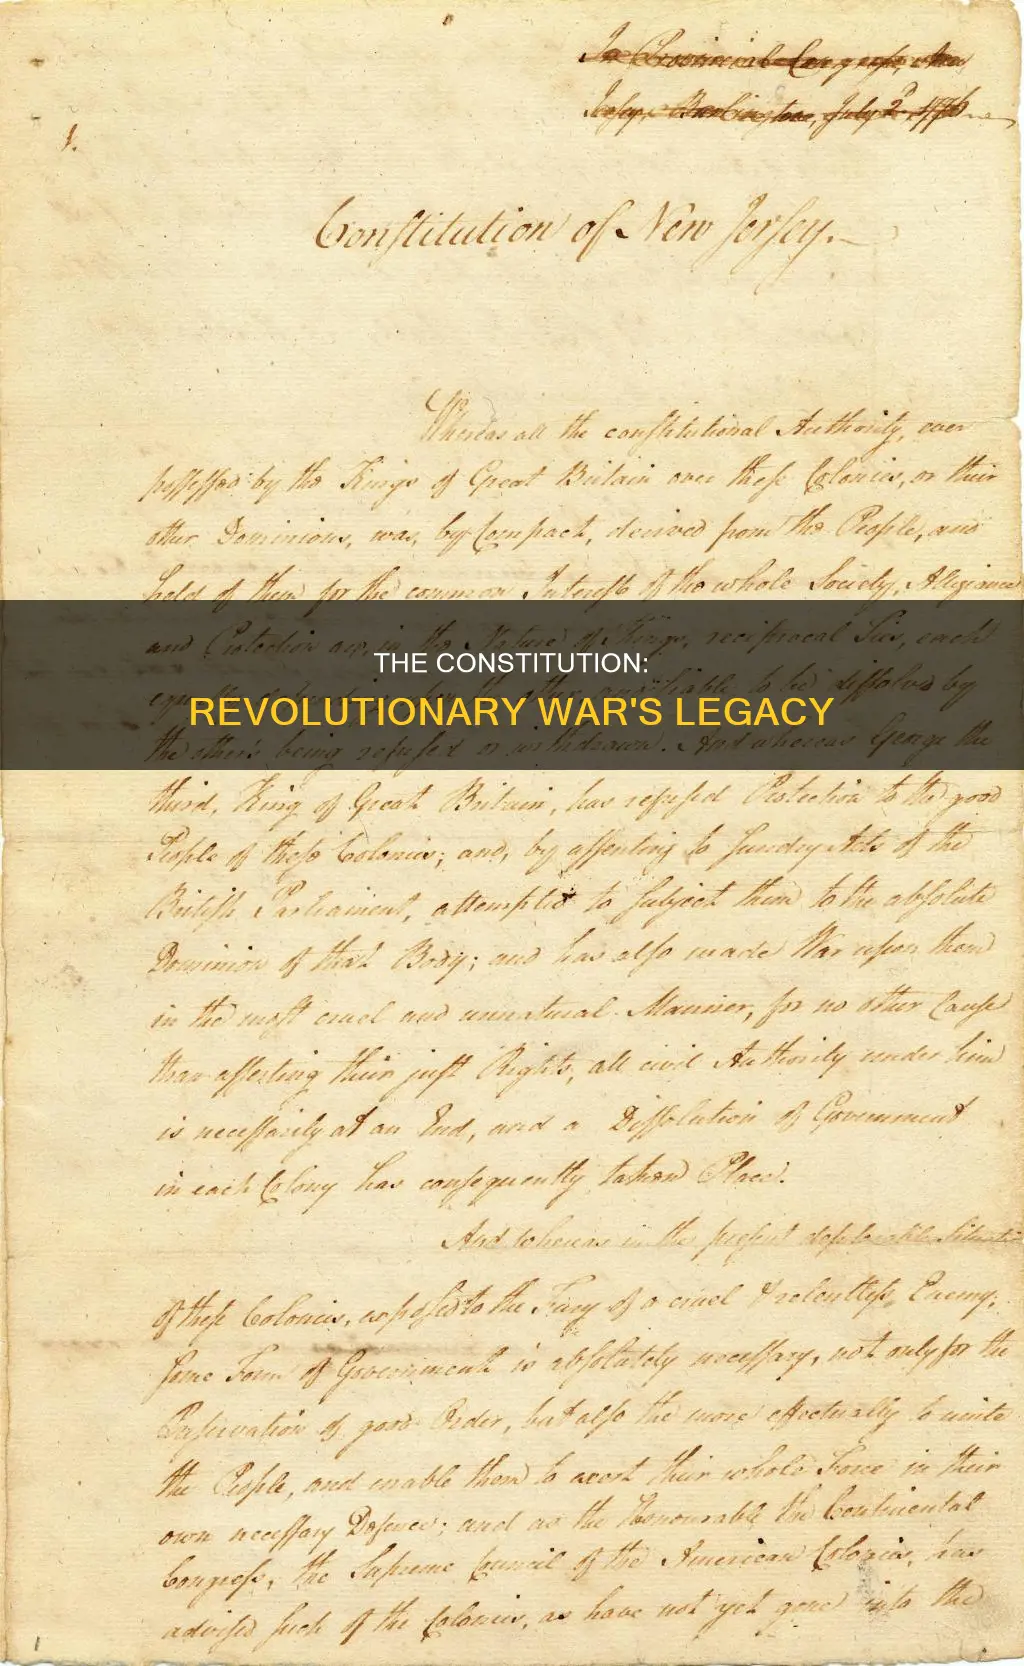 In Provincial Congress, New
Jersey, Burlington, July 2d 1776
1.
Constitution of New Jersey.
Whereas all the constitutional Authority, ever
possessed by the Kings of Great Britain over these Colonies, or their
other Dominions, was, by Compact, derived from the People, and
held of them for the common Interest of the whole Society, Allegiance
and Protection are, in the Nature of Things, reciprocal Ties, each
THE CONSTITUTION:
equally depending upon the other, and liable to be dissolved by
REVOLUTIONARY WAR'S LEGACY
the other's being refused or withdrawn. And whereas George the
third, King of Great Britain, has refused Protection to the good
People of these Colonies; and, by assenting to sundry Acts of the
British Parliament, attempted to subject them to the absolute
Dominion of that Body; and has also made War upon them
in the most cruel and unnatural Manner, for no other Cause
than asserting their just Rights, all civil Authority under him
is necessarily at an End, and a Dissolution of Government
in each Colony has consequently taken Place.
And whereas in the present deplorable Situation
of these Colonies, exposed to the Fury of a cruel & relentless Enemy,
some Form of Government is absolutely necessary, not only for the
Preservation of good Order, but also the more effectually to unite
the People, and enable them to exert their whole Force in their
own necessary Defence; and as the Honourable the Continental
Congress, the Supreme Council of the American Colonies, has
advised such of the Colonies, as have not yet gone into the